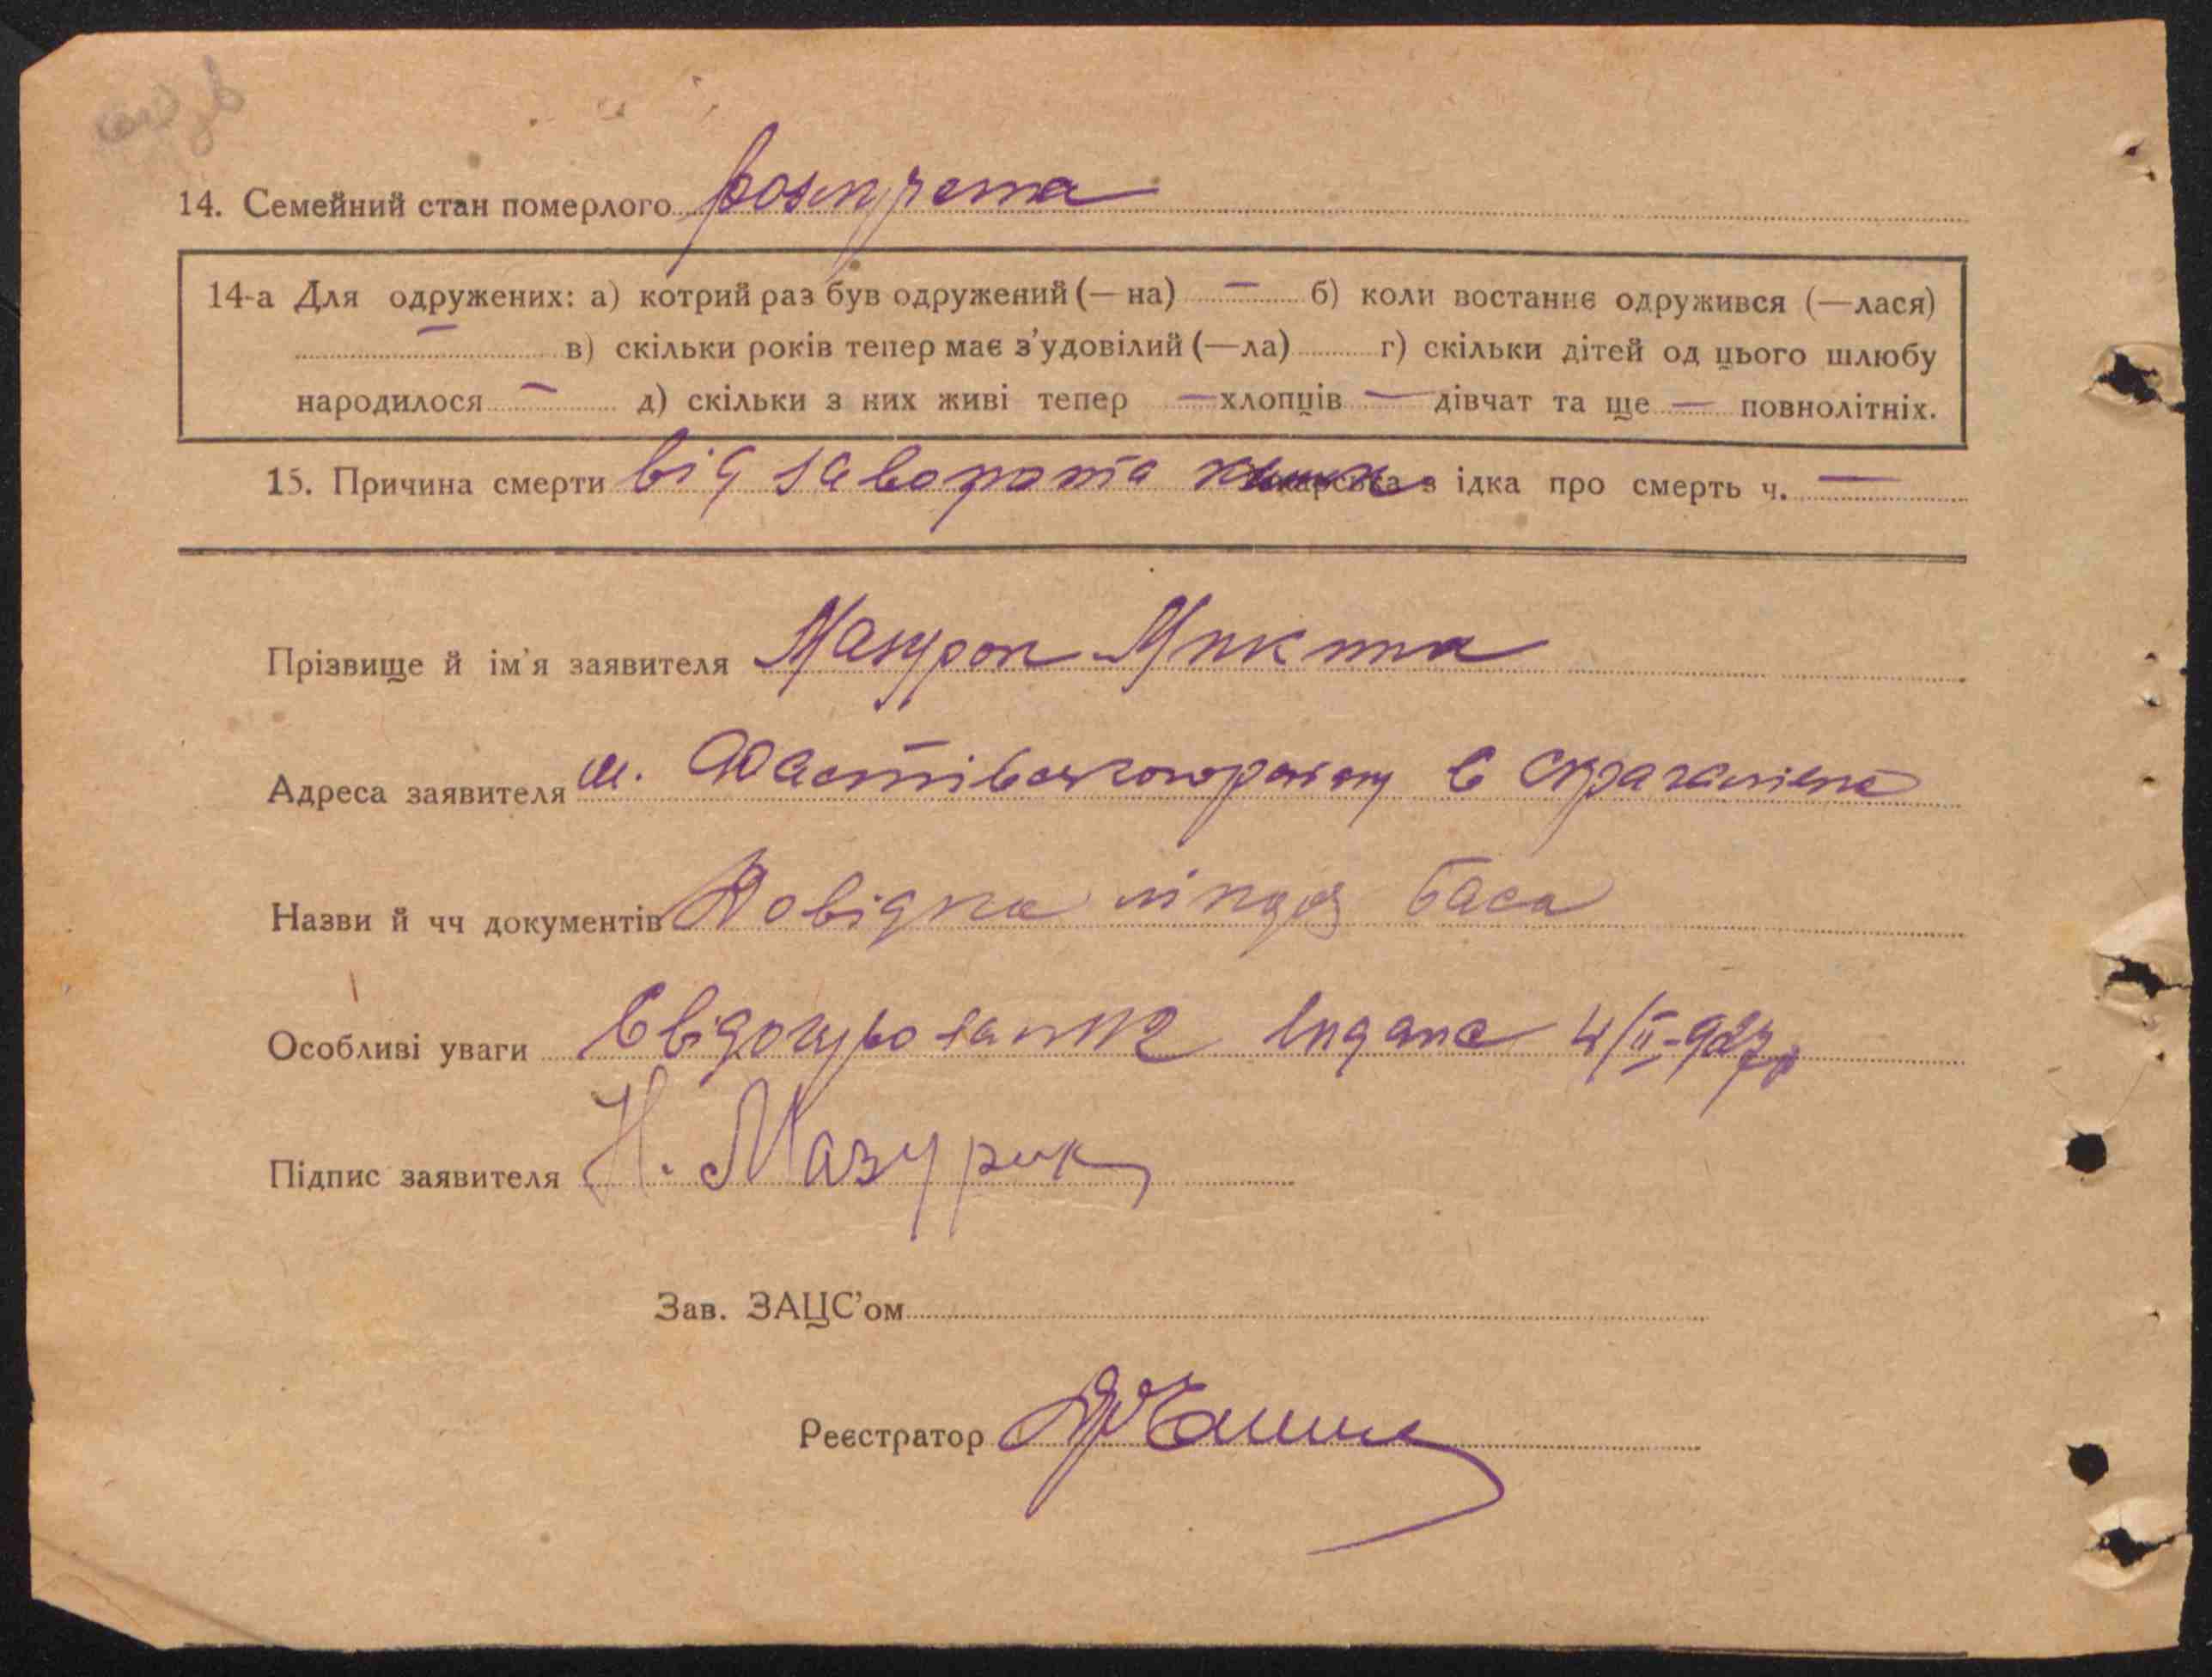 14. Семейний стан померлого
14-а Для одружених: а) котрий раз був одружений (— на) — б) коли востаннє одружився (—лася)
— в) скільки років тепер має з’удовілий (—ла) г) скільки дітей од цього шлюбу
народилося — д) скільки з них живі тепер — хлопців — дівчат та ще — повнолітніх.
15. Причина смерти від заворота кишок лікарська з ідка про смерть ч. —
Прізвище й ім’я заявителя Мазурок Микита
Адреса заявителя м. Фастівського району с
Назви й чч документів Довідка лікаря Баса
Особливі уваги Свідоцтво видане 4/II-927р
Підпис заявителя Н. Мазурик
Зав. ЗАЦС’ом
Реєстратор